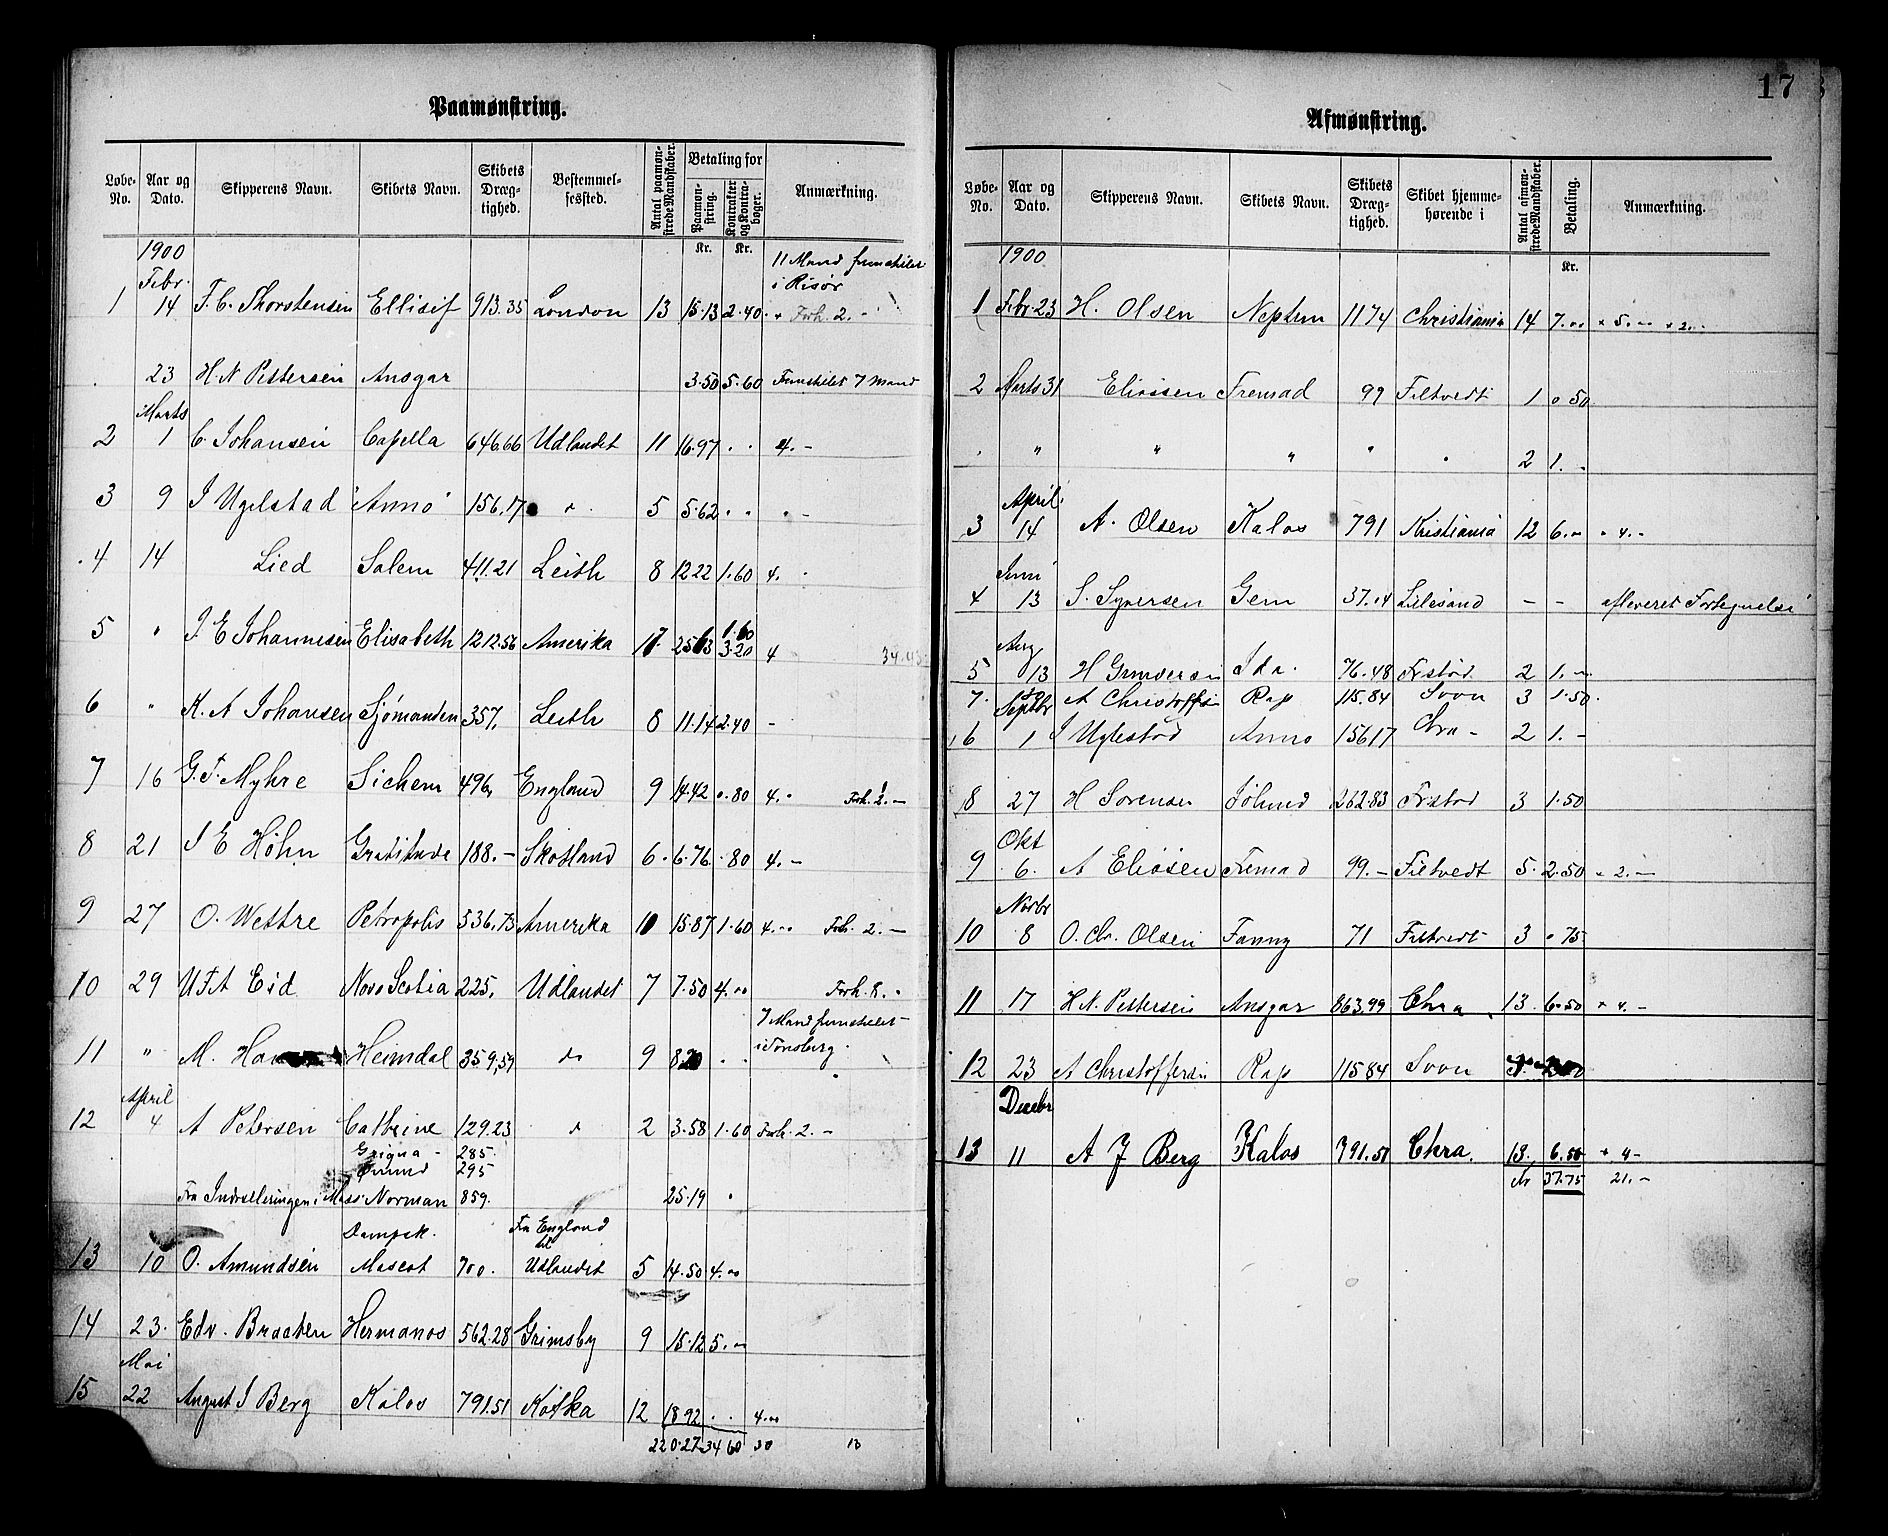 Paamønstring.
Løbe-No. Aar og Dato. Skipperens Navn. Skibets Navn. Skibets Dræg-tighed. Bestemmel-sessted. Antal paamøn-strede Mandskaber. Betaling for Paamøn-string. Kontrakter og Kontra-bøger. Anmærkning.
Kr. Kr.
1900 11 Mand
Febr. i Risør
1 14 F. C. Thorstensen Ellisif 913.35 London 13 15.13 2.40 Forh. 2.-
23 H. N Pettersen Ansgar 3.50 5.60 7 Mand
Marts
2 1 C. Johansen Capella 646.66 Udlandet 11 16.97 . . 4.-
3 9 J Ugelstad Anno 156.17 " 5 5.62 . . "-
4 14 Lied Salem 411.21 Leith 8 12 22 1.60 4.
5 " J E Johannesen Elisabeth 1212.56 Amerika 3.20 4
6 " K. A Johansen Sjømanden 357, Leith 8 11.14 2.40 -
7 16 G. F. Myhre Sichem 496, England 9 14.42 .80 4. Forh. 2.-
8 21 J E Høhn Gratitude 188.- Skotland 6. 6.76 .80 4.-
9 27 O. Wettre Petropolis 536,73 Amerika 10 15.87 1.60 4.00 Forh. 2.-
10 29 Eid Nova Scotia 225, Udlandet 7 7.50 4.00 Forh.
7 Mand
11 " M. Heimdal 359,59 do 9 i Tønsberg.
April
12 4 A Petersen Cathrine 129.23 " 2 3.58 1.60 Forh. 2.-
Griqua - 285
Ømund 295
Fra Indrulleringen i Moss Norman 859. 25.19
Dampsk. Fra England til
13 10 O. Amundsen Mascot 700. Udlandet 5 14.50 4.00
14 23. Edv. Braaten Hermanos 562.28 Grimsby 9 15.12 5.00
Mai
15 22 August J Berg Kalos 791.51 Kotka 12 18 92 . . 4.00
220.27 34 60 30
17
Afmønstring.
Løbe-No. Aar og Dato. Skipperens Navn. Skibets Navn. Skibets Dræg-tighed. Skibet hjemme-hørende i Antal afmøn-strede Mandskaber. Betaling. Anmærkning.
1900 Kr.
1 Febr. 23 H. Olsen Neptun 1174 Christiania 14 7.00 + 5.00 + 2.-
2 Marts 31 Eliassen Fremad 99 Filtvedt 1 0 50
" " " " " 2 1.-
April
3 14 A. Olsen Kalos 791 Kristiania 12 6.00 " 4.-
Juni
4 13 S. Syversen Gem 37.14 Lillesand - - afleveret Fortegnelse
Aug
5 13 H Gundersen Ida. 76.48 Frstad 2 1.-
7. A Christoffersen Rap 115.84 Soon 3 1.50
Septbr
6 1 J Uglestad Anno 156 17 Chra - 2 1.-
8 27 H Sorensen 262.83 Frstad 3 1.50
Okt
9 6. A Eliasen Fremad 99.- Filtvedt 5. 2.50 " 2.-
Novbr
10 8 O. Chr. Olsen Fanny 71 Filtvedt 3 " 75
11 17 H N. Pettersen Ansgar 863,99 Chra 13. 6.50 + 4.-
12 23 A Christoffersen Rap 115 84 Soon
Decebr
13 11 A J Berg Kalos 791.51 Chra. 13. 6.50 + 4-
Kr 37.75 21.-